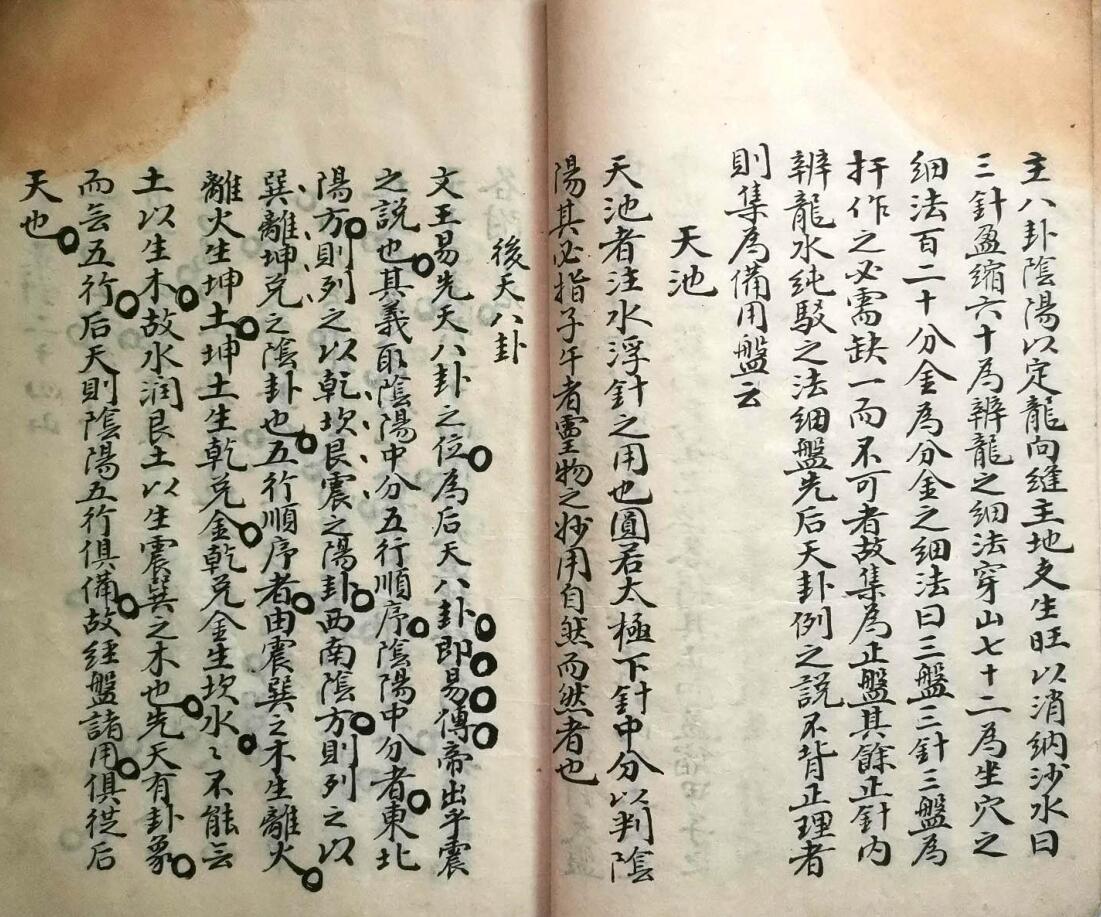 主八卦陰陽以定龍向縫主地支生旺以消納沙水曰
三針盈縮六十為辨龍之細法穿山七十二為坐穴之
細法百二十分金為分金之細法曰三盤三針三盤為
扞作之必需缺一而不可者故集為正盤其餘正針内
辨龍水純駁之法細盤先后天卦例之說不背正理者
則集為備用盤云
天池
天池者注水浮針之用也圓若太極下針中分以判陰
陽其必指子午者靈物之妙用自然而然者也
後天八卦
文王易先天八卦之位為后天八卦即易傳帝出乎震
之說也其義取陰陽中分五行順序陰陽中分者東北
陽方則列之以乾坎艮震之陽卦西南陰方則列之以
巽離坤兌之陰卦也五行順序者由震巽之木生離火
離火生坤土坤土生乾兌金乾兌金生坎水〻不能云
土以生木故水润艮土以生震巽之木也先天有卦象
而云五行后天則陰陽五行俱備故経盤諸用俱從后
天也